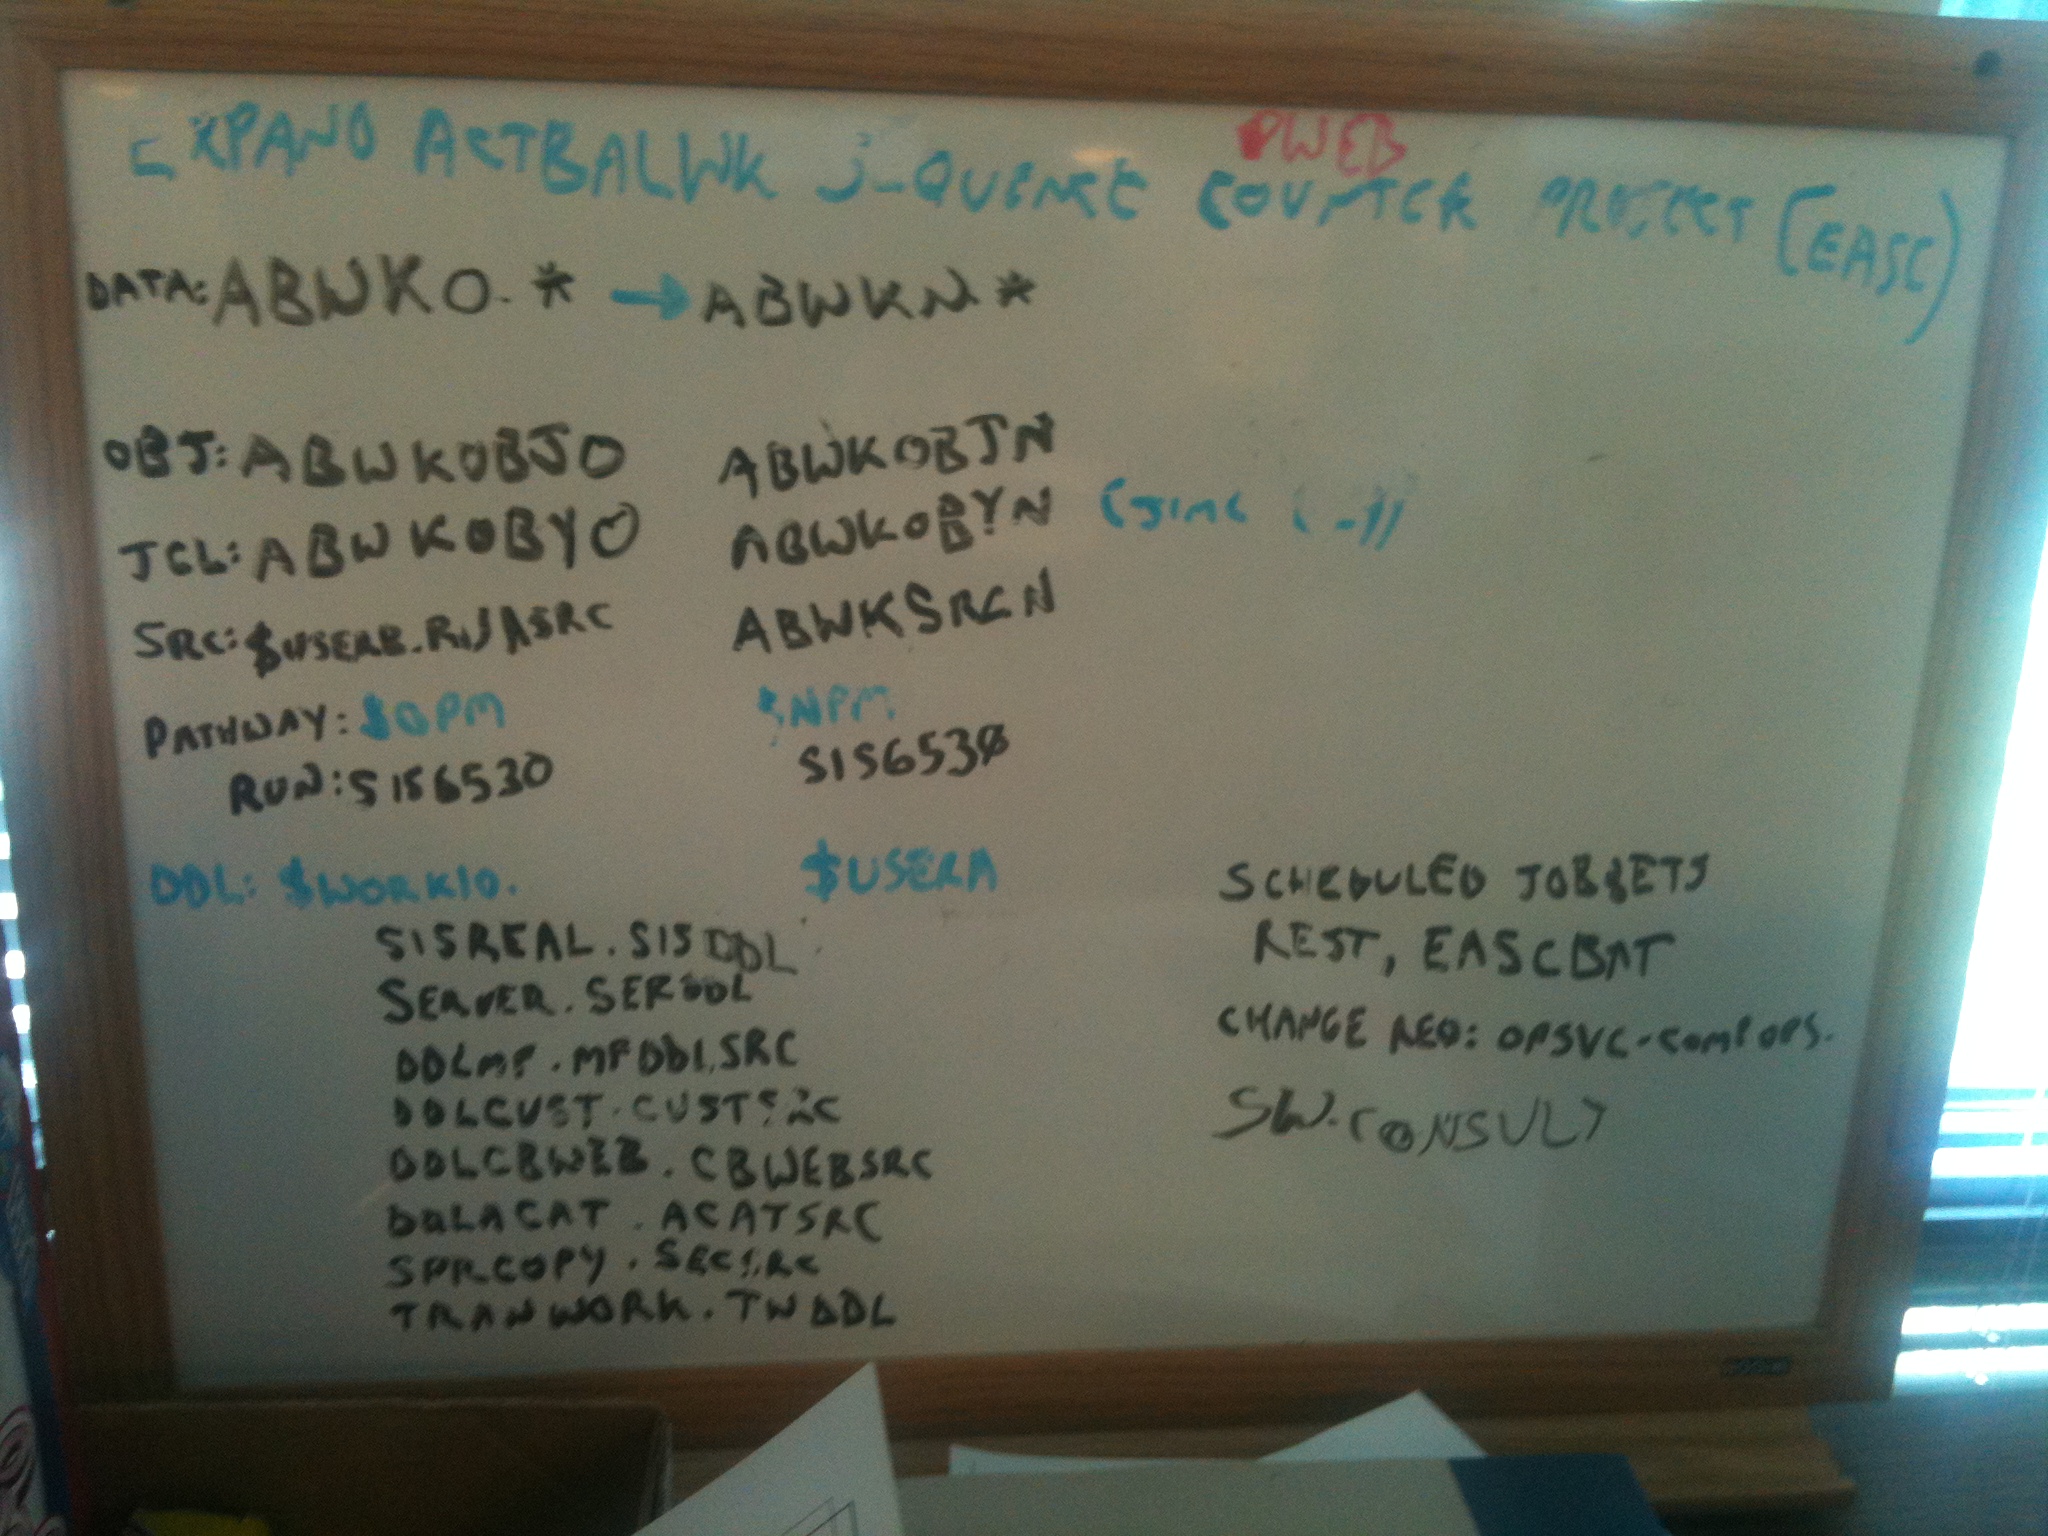 EXPAND ACTBALWK SEQUENCE COUNTER PROJECT (EASC)
WEB
DATA: ABWKO.* → ABWKN.*
OBJ: ABWKOBJO ABWKOBJN
JCL: ABWKOBYO ABWKOBYN
SRC: $USERB. ABWKSRCN
PATHWAY: $OPM $NPM
RUN: SIS6530 SIS6530
DDL: $WORK10. $USERA
SISREAL.SISDDL
SERVER.SERDDL
DDLMF.MFDDLSRC
DDLCUST.CUSTSRC
DDLCBWEB.CBWEBSRC
DDLACAT.ACATSRC
SPRCOPY.SECSRC
TRANWORK.TWDDL
SCHEDULED JOBSETS
REST, EASCBAT
CHANGE REQ: OPSVC-COMPOPS.
SW.CONSULT